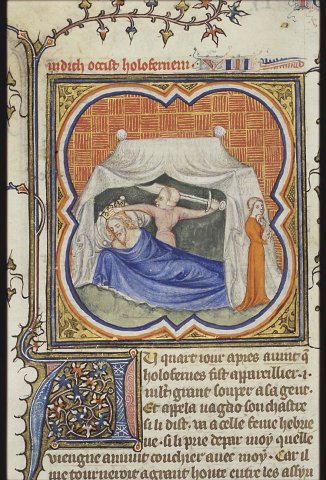 iudich occist holofernem.
AU quart iour apres auint q̄
holofernes fist appareillier .i.
mlt grant souper a sa gent.
Et appela vagao son chastre
si li dist. va a celle feme hebrie
ue. si li prie depar moy quelle
viengne anuuit couchier auec moy. Car il
me tourneroit a grant honte entre les assyri